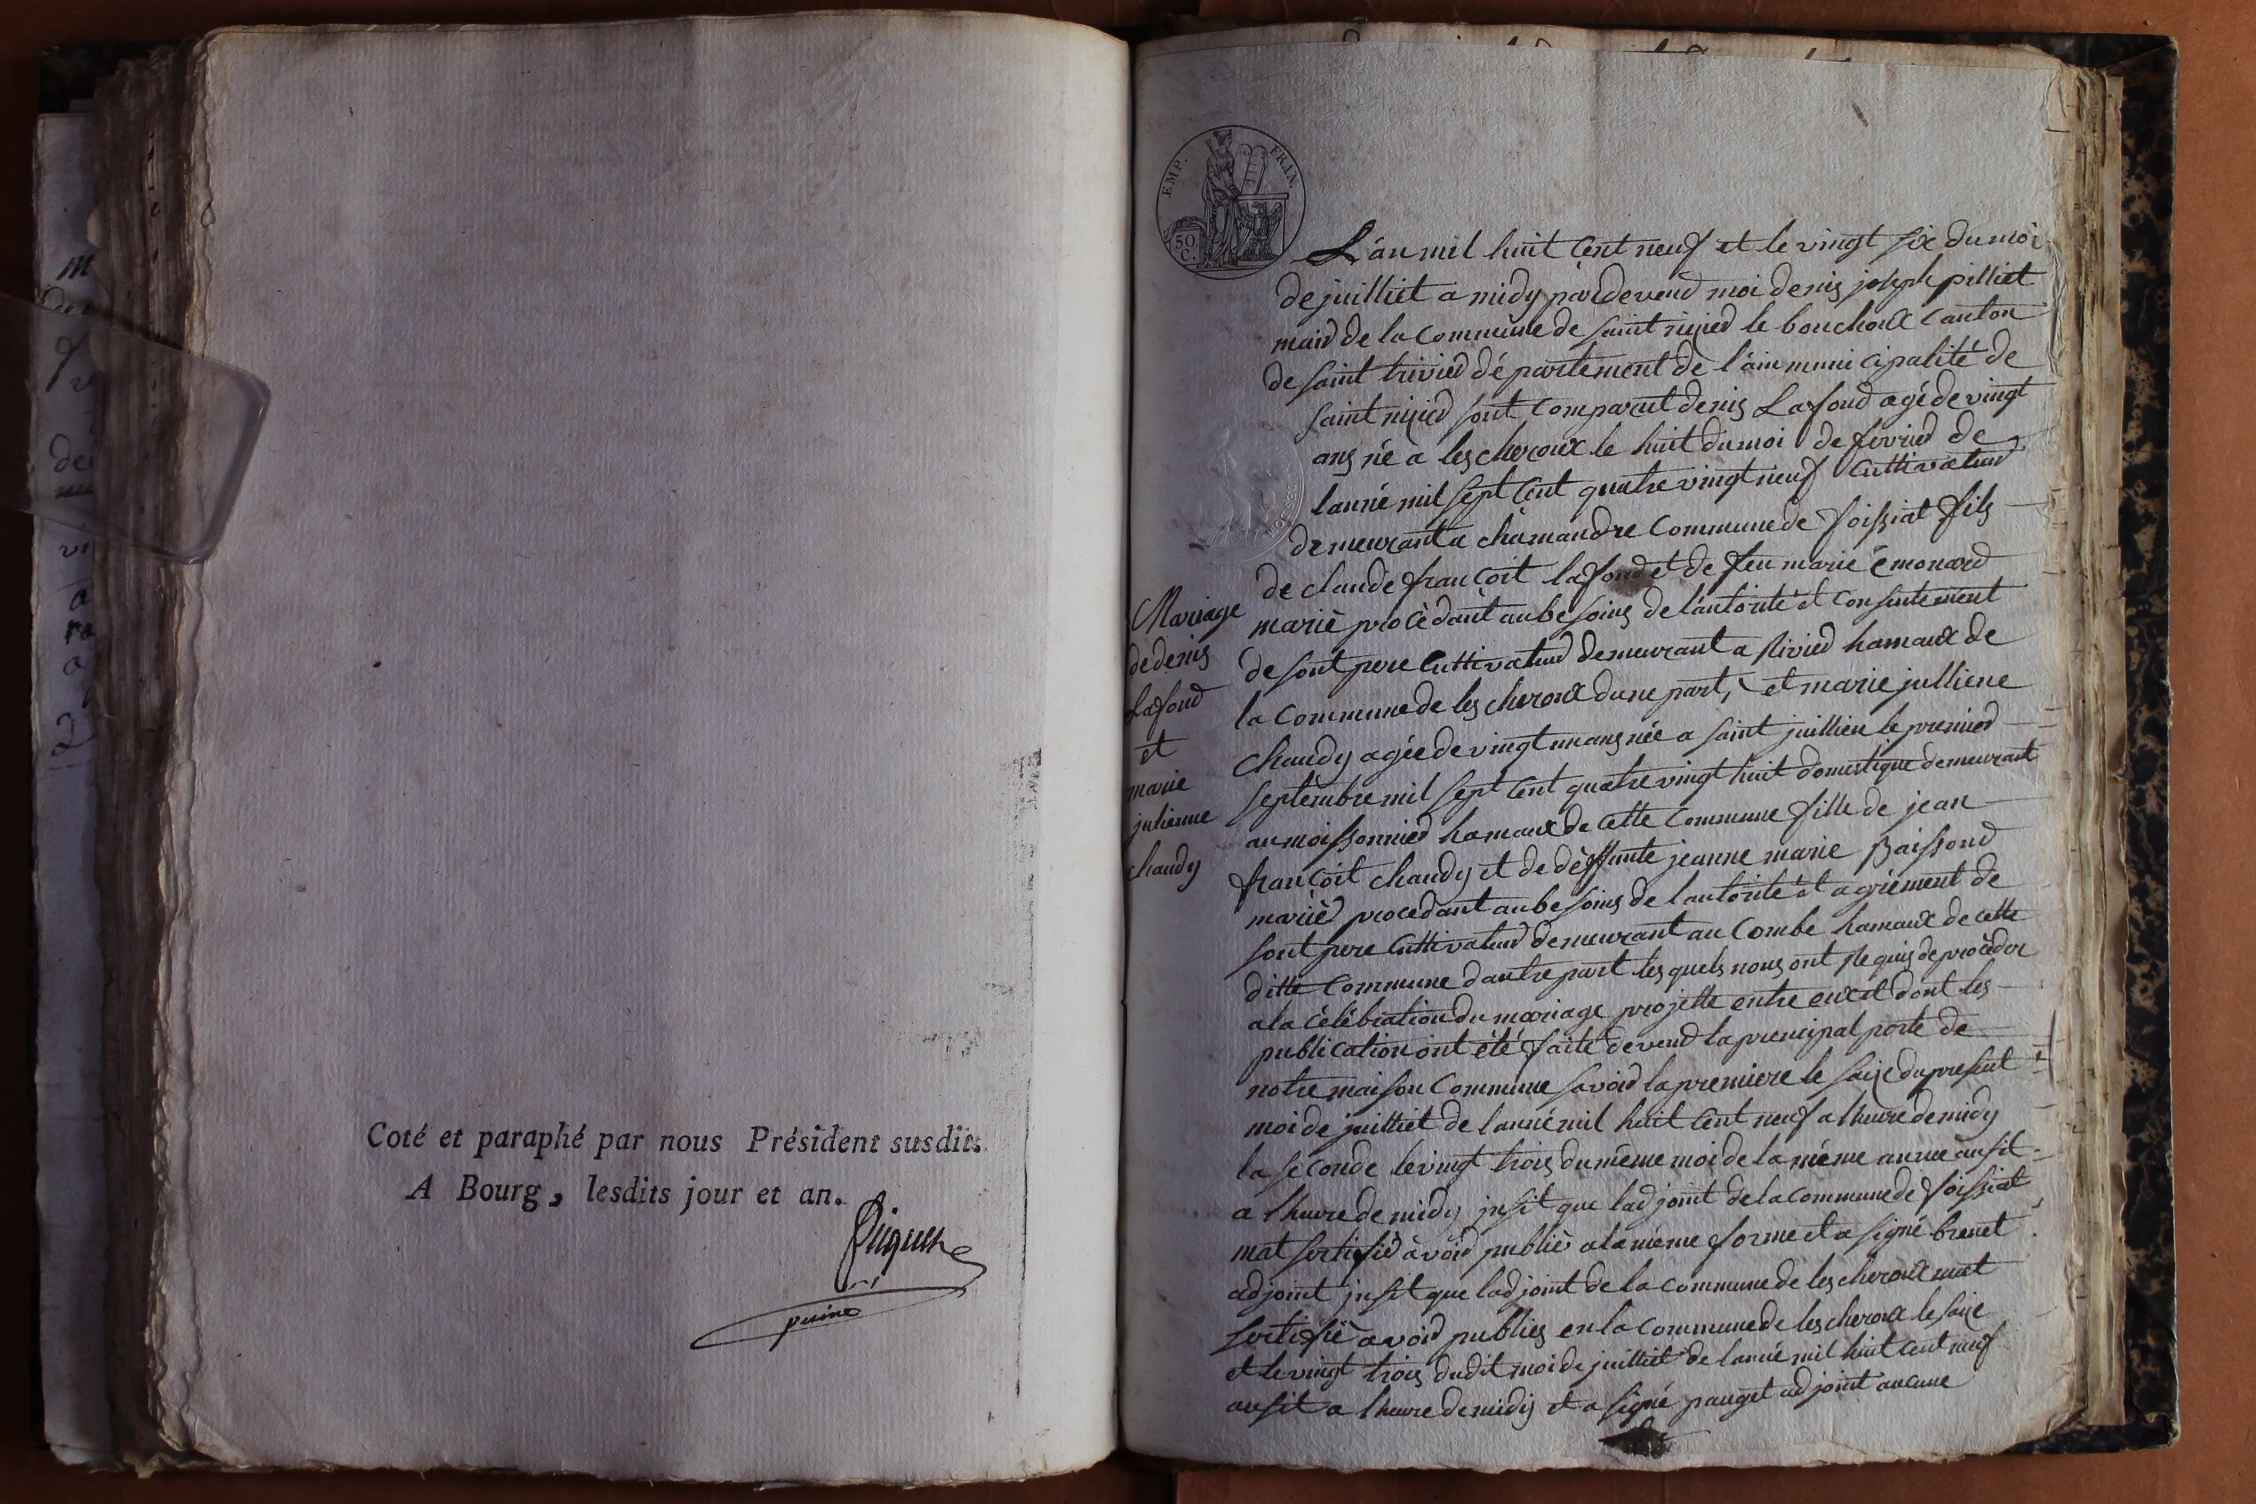 Coté et paraphé par nous Président susdit.
A Bourg, lesdits jour et an.
EMP. FRAN.
50
C.
Mariage
de denis
Lafond
et
marie
julienne
chaudy
L'an mil huit Cent neuf et le vingt six du moi
de juilliet a midy par devend moi denis joseph pilliet
maird de la Commune de saint nijied le bouchoux Canton
de saint trivied département de l'ain municipalité de
saint nijied sont Comparut denis Lafond agé de vingt
ans né a les cheroux le huit du moi de fevried de
lanné mil sept Cent quatre vingt neuf Cuttivateud
demeurant a chamandre Commune de foissiat fils
de claude françoit lafond et de feu marie émonard
mariè procèdant au besoins de l'autorité et Consintement
de sont pere Cuttivateud demeurant a rivied hamaux de
la Commune de les cheroux dune part, et marie julliene
Chaudy agée de vingt un ans née a saint juillien le premied
septembre mil sept Cent quatre vingt huit domestique demeurant
au moissonnied hamaux de cette Commune fille de jean
françoit chaudy et de dèffunte jeanne marie Baissond
mariès procedant au besoins de l'autorité et agrément de
sont pere Cuttivateud demeurant au Combe hamaux de cette
ditte Commune d'autre part les quels nous ont requis de procèder
a la cèlébration du mariage projette entre eux et dont les
publication ont été faite devend la principal porte de
notre maison Commune savoid la premiere le saize du present
moi de juilliet de lanné mil huit Cent neuf a lheure de midy
la seconde le vingt trois du même moi de la même année ausit
a lheure de midy insit que ladjoint de la commune de foissiat
mat sertifié àvoid publiés a la même forme et a signé brevet
adjoint insit que ladjoint de la commune de les cheroux mat
sertifiè avoid publiés en la commune de les cheroux le saize
et le vingt trois dudit moi de juilliet de lanné mil huit Cent neuf
ausit a lheure de midy et a signé pauget adjoint aucune